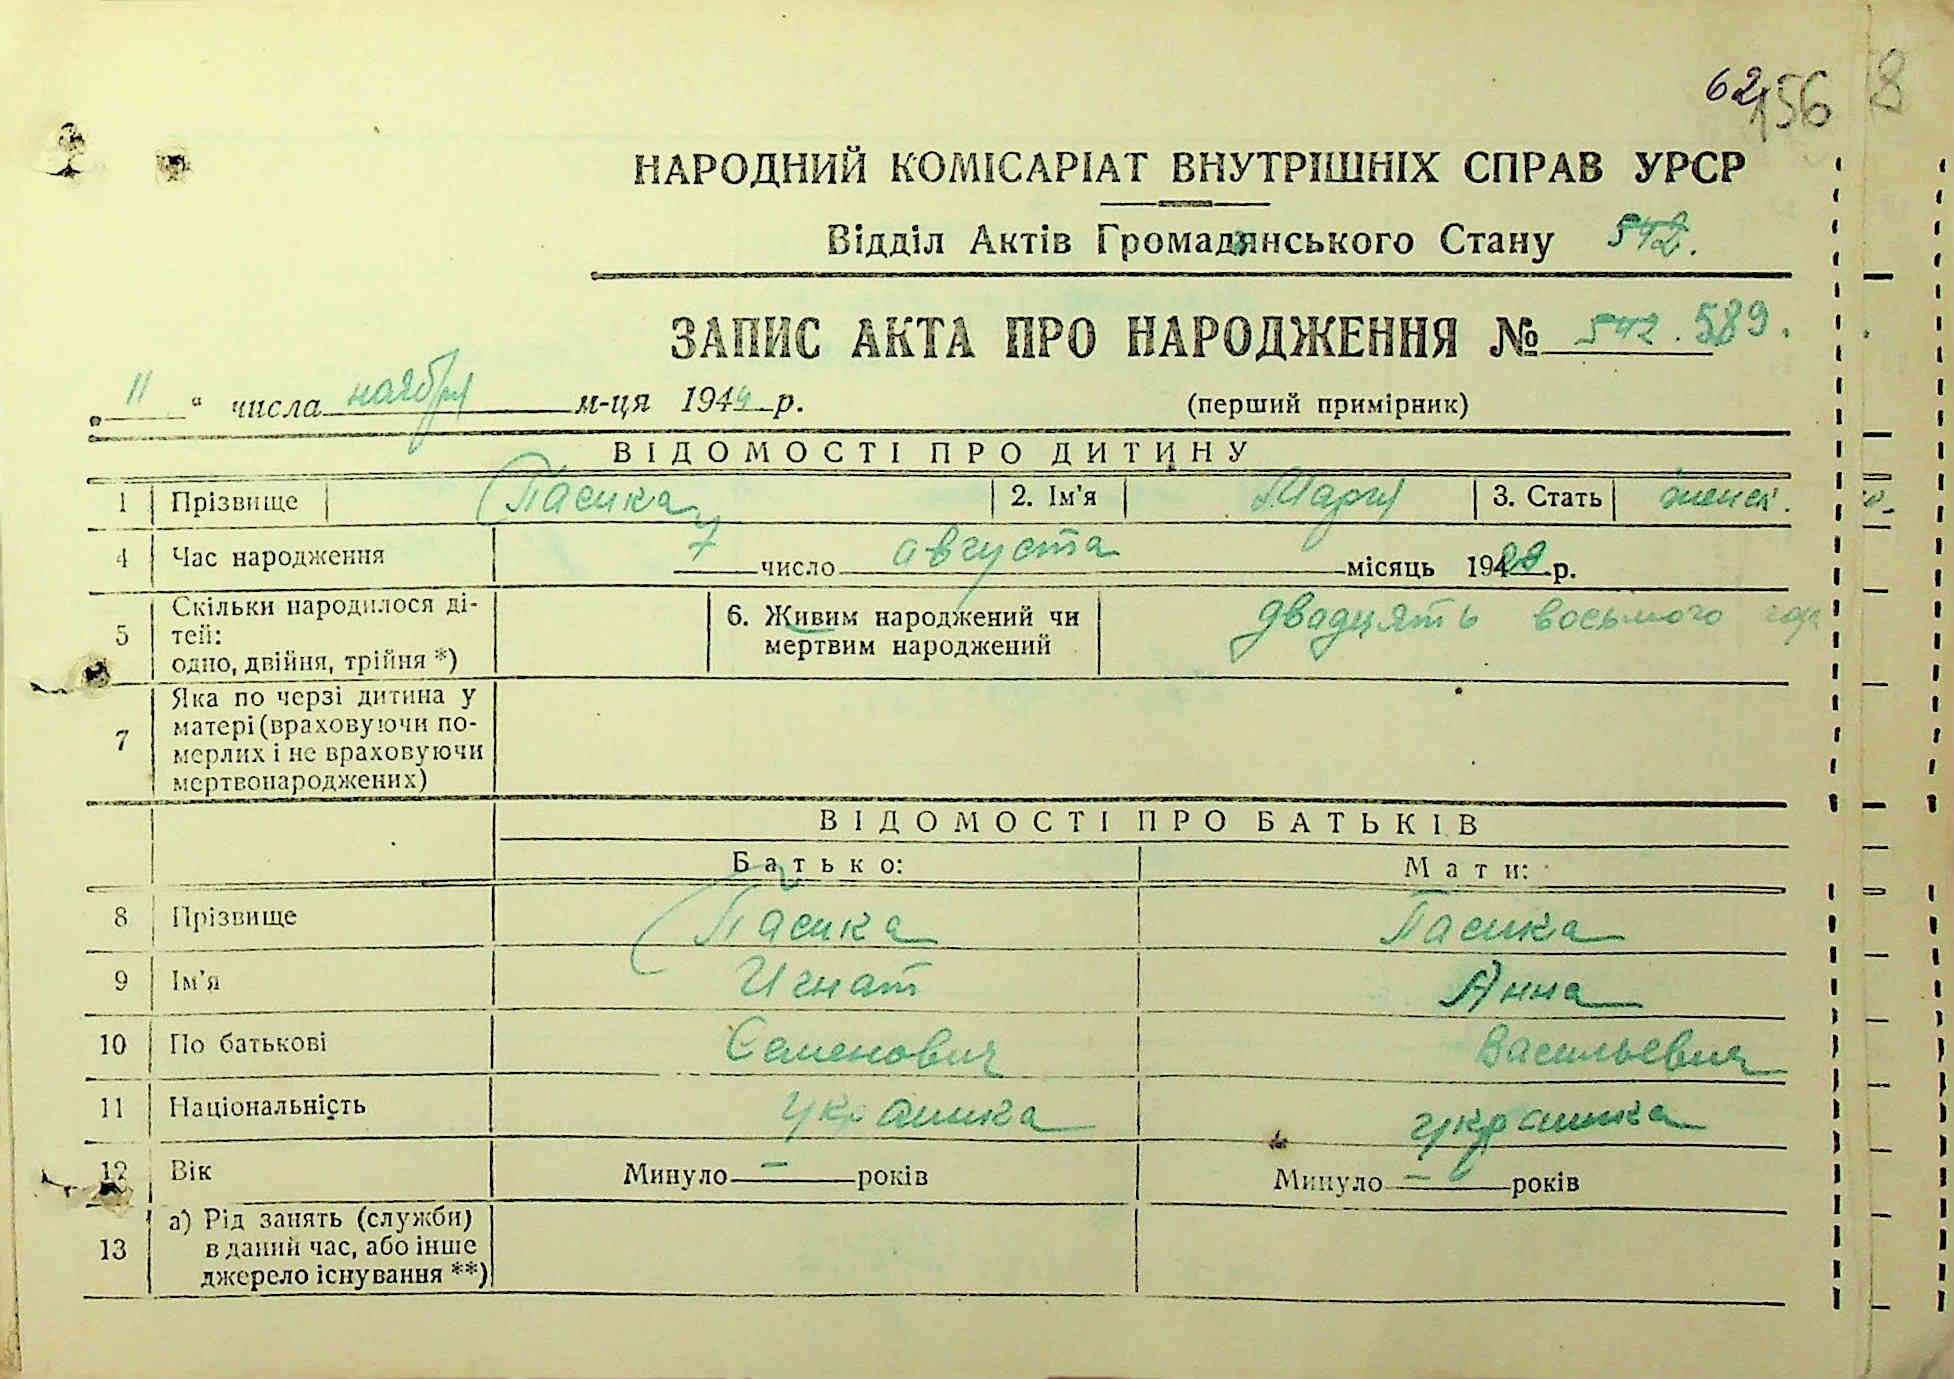 62 156 8
НАРОДНИЙ КОМІСАРІАТ ВНУТРІШНІХ СПРАВ УРСР
Відділ Актів Громадянського Стану 542.
ЗАПИС АКТА ПРО НАРОДЖЕННЯ № 542. 589.
„ 11 “ числа ноября м-ця 1944 р. (перший примірник)
ВІДОМОСТІ ПРО ДИТИНУ
1 Прізвище Пасика 2. Ім'я Мария 3. Стать женск.
4 Час народження 7 число августа місяць 1928 р.
5 Скільки народилося ді-
тей:
одно, двійня, трійня *)
6. Живим народжений чи
мертвим народжений
двадцять восьмого года
7 Яка по черзі дитина у
матері (враховуючи по-
мерлих і не враховуючи
мертвонароджених)
ВІДОМОСТІ ПРО БАТЬКІВ
Батько: Мати:
8 Прізвище Пасика Пасика
9 Ім'я Игнат Анна
10 По батькові Семенович Васильевич
11 Національність украинка украинка
12 Вік Минуло — років Минуло — років
13 а) Рід занять (служби)
в даний час, або інше
джерело існування **)